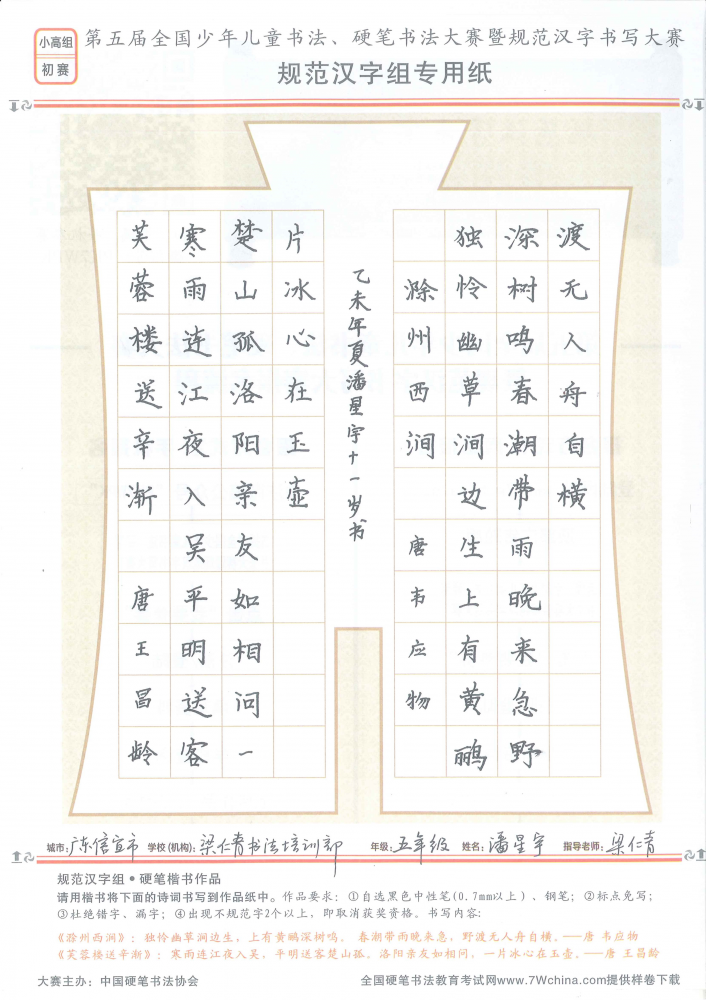 小高组
初赛
第五届全国少年儿童书法、硬笔书法大赛暨规范汉字书写大赛
规范汉字组专用纸
芙蓉楼送辛渐 唐王昌龄
寒雨连江夜入吴平明送客
楚山孤洛阳亲友如相问一
片冰心在玉壶
乙未年夏潘星宇十一岁书
滁州西涧 唐韦应物
独怜幽草涧边生上有黄鹂
深树鸣春潮带雨晚来急野
渡无人舟自横
城市:广东信宜市 学校(机构):梁仁青书法培训部 年级:五年级 姓名:潘星宇 指导老师:梁仁青
规范汉字组•硬笔楷书作品
请用楷书将下面的诗词书写到作品纸中。作品要求：①自选黑色中性笔(0.7mm以上)、钢笔；②标点免写；
③杜绝错字、漏字；④出现不规范字2个以上，即取消获奖资格。书写内容：
《滁州西涧》：独怜幽草涧边生，上有黄鹂深树鸣。 春潮带雨晚来急，野渡无人舟自横。——唐 韦应物
《芙蓉楼送辛渐》：寒雨连江夜入吴，平明送客楚山孤。洛阳亲友如相问，一片冰心在玉壶。——唐 王昌龄
大赛主办：中国硬笔书法协会 全国硬笔书法教育考试网www.7Wchina.com提供样卷下载